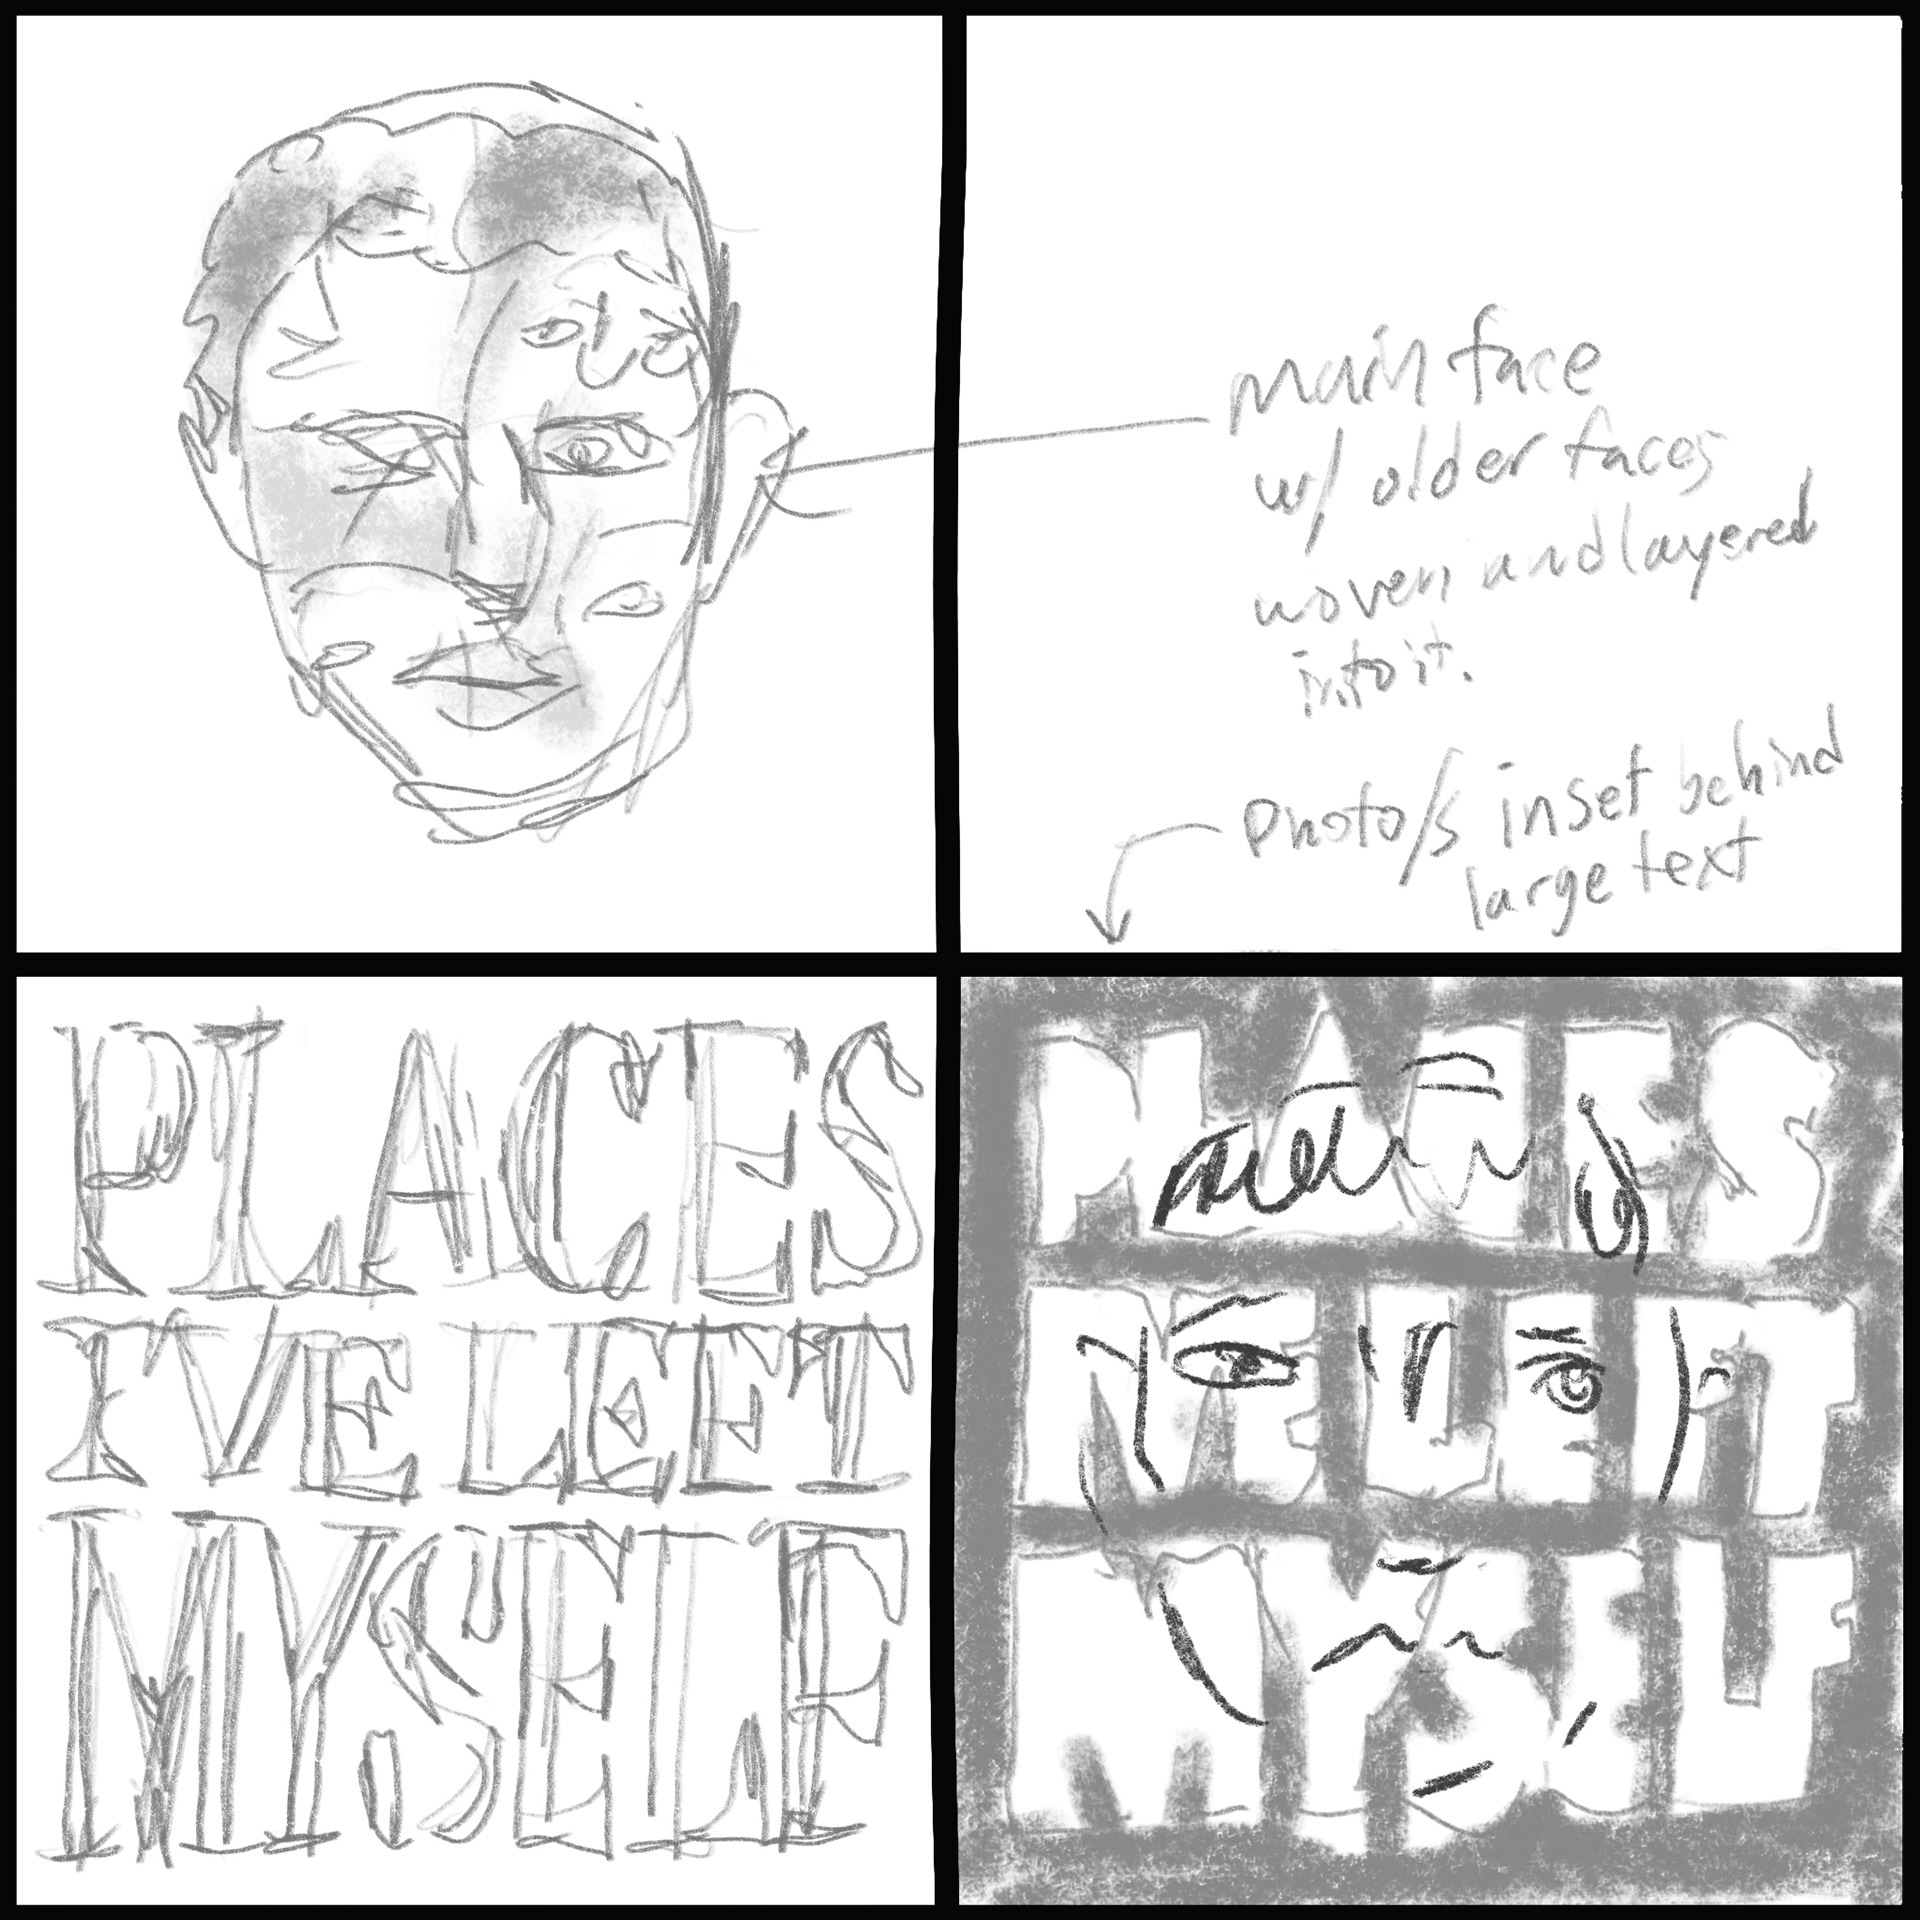 main face
w/ older faces
woven and layered
into it.
photo/s inset behind
large text
PLACES
I'VE LEFT
MYSELF
PLACES